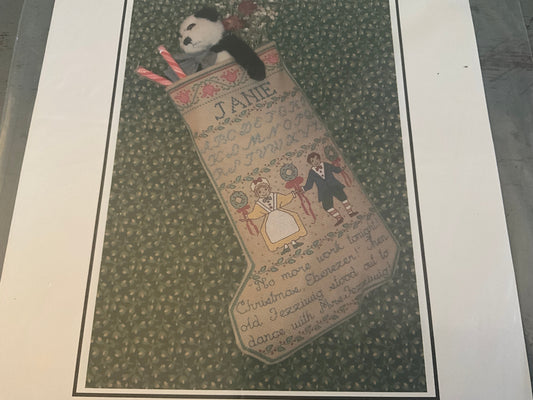 JANIE
A B C D E F G H
K L M N O P
R S T U V W X Y
No more work tonight
Christmas, Ebenezer! Then
old Fezziwig stood out to
dance with Mrs. Fezziwig